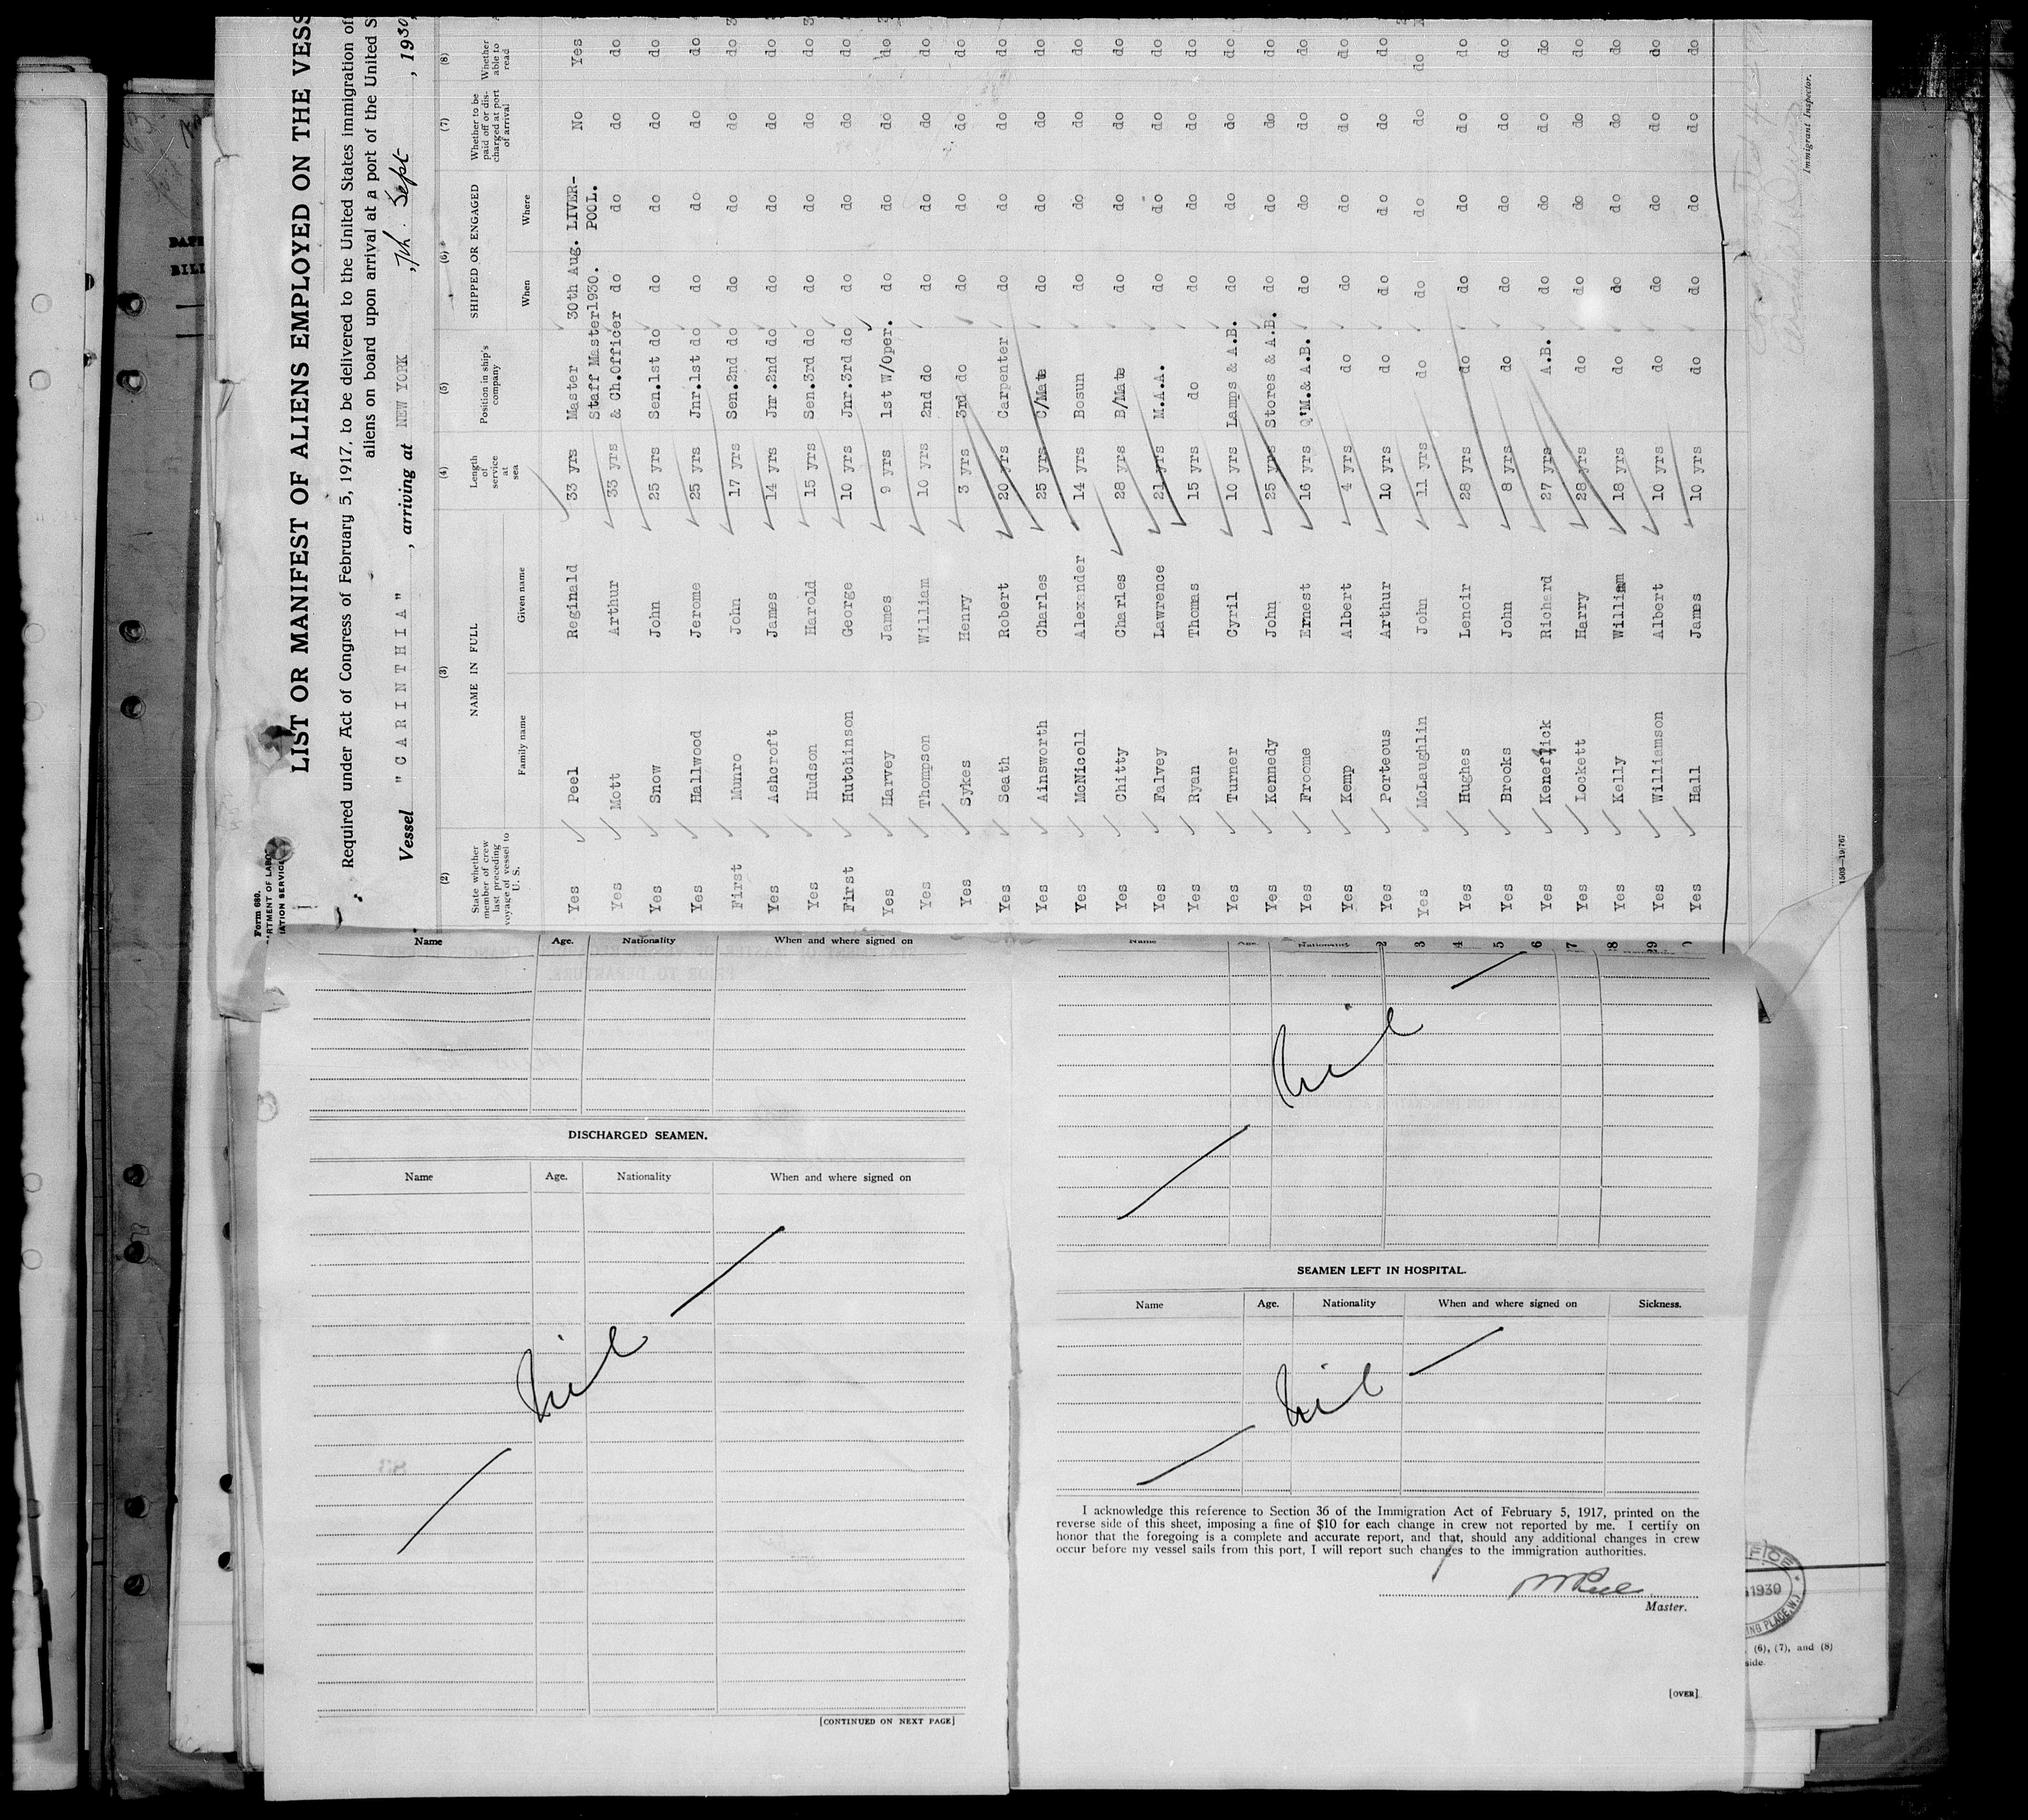 Form 680.
LIST OR MANIFEST OF ALIENS EMPLOYED ON THE
Required under Act of Congress of February 5, 1917, to be delivered to the United States immigration
aliens on board upon arrival at a port of the United
Vessel "CARINTHIA", arriving at NEW YORK, 7th Sept, 1930,
(2) (3) (4) (5) (6) (7) (8)
State whether member of crew last preceding voyage of vessel to U. S. NAME IN FULL Family name Given name Length of service at sea Position in ship's company SHIPPED OR ENGAGED When Where Whether to be paid off or discharged at port of arrival Whether able to read
Yes Peel Reginald 33 yrs Master 30th Aug. 1930. LIVERPOOL. No Yes
Yes Mott Arthur 33 yrs Staff Master & Ch.Officer do do do do
Yes Snow John 25 yrs Sen.1st do do do do do
Yes Hallwood Jerome 25 yrs Jnr.1st do do do do do
First Munro John 17 yrs Sen.2nd do do do do do
Yes Ashcroft James 14 yrs Jnr.2nd do do do do do
Yes Hudson Harold 15 yrs Sen.3rd do do do do do
First Hutchinson George 10 yrs Jnr.3rd do do do do do
Yes Harvey James 9 yrs 1st W/Oper. do do do do
Yes Thompson William 10 yrs 2nd do do do do do
Yes Sykes Henry 3 yrs 3rd do do do do do
Yes Seath Robert 20 yrs Carpenter do do do do
Yes Ainsworth Charles 25 yrs C/Mate do do do do
Yes McNicoll Alexander 14 yrs Bosun do do do do
Yes Chitty Charles 28 yrs B/Mate do do do do
Yes Falvey Lawrence 21 yrs M.A.A. do do do do
Yes Ryan Thomas 15 yrs do do do do do
Yes Turner Cyril 10 yrs Lamps & A.B. do do do do
Yes Kennedy John 25 yrs Stores & A.B. do do do do
Yes Froome Ernest 16 yrs Q'M.& A.B. do do do do
Yes Kemp Albert 4 yrs do do do do do
Yes Porteous Arthur 10 yrs do do do do do
Yes McLaughlin John 11 yrs do do do do do
Yes Hughes Lenoir 28 yrs do do do do do
Yes Brooks John 8 yrs do do do do do
Yes Kenefick Richard 27 yrs A.B. do do do do
Yes Lockett Harry 28 yrs do do do do do
Yes Kelly William 18 yrs do do do do do
Yes Williamson Albert 10 yrs do do do do do
Yes Hall James 10 yrs do do do do do
Immigrant Inspector.
Name Age. Nationality When and where signed on
DISCHARGED SEAMEN.
Name Age. Nationality When and where signed on
Nil
[CONTINUED ON NEXT PAGE]
Nil
SEAMEN LEFT IN HOSPITAL.
Name Age. Nationality When and where signed on Sickness.
Nil
I acknowledge this reference to Section 36 of the Immigration Act of February 5, 1917, printed on the
reverse side of this sheet, imposing a fine of $10 for each change in crew not reported by me. I certify on
honor that the foregoing is a complete and accurate report, and that, should any additional changes in crew
occur before my vessel sails from this port, I will report such changes to the immigration authorities.
Master.
[OVER]
1930
(6), (7), and (8)
side.